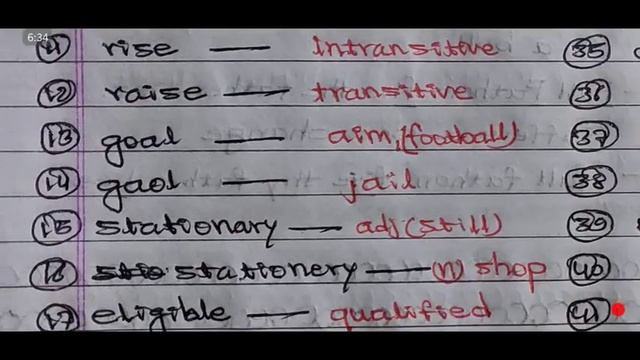 6:34
11 rise — intransitive 35
12 raise — transitive 36
13 goal — aim, (football) 37
14 gaol — jail 38
15 stationary — adj (still) 39
16 stationery — (n) shop 40
17 eligible — qualified 41